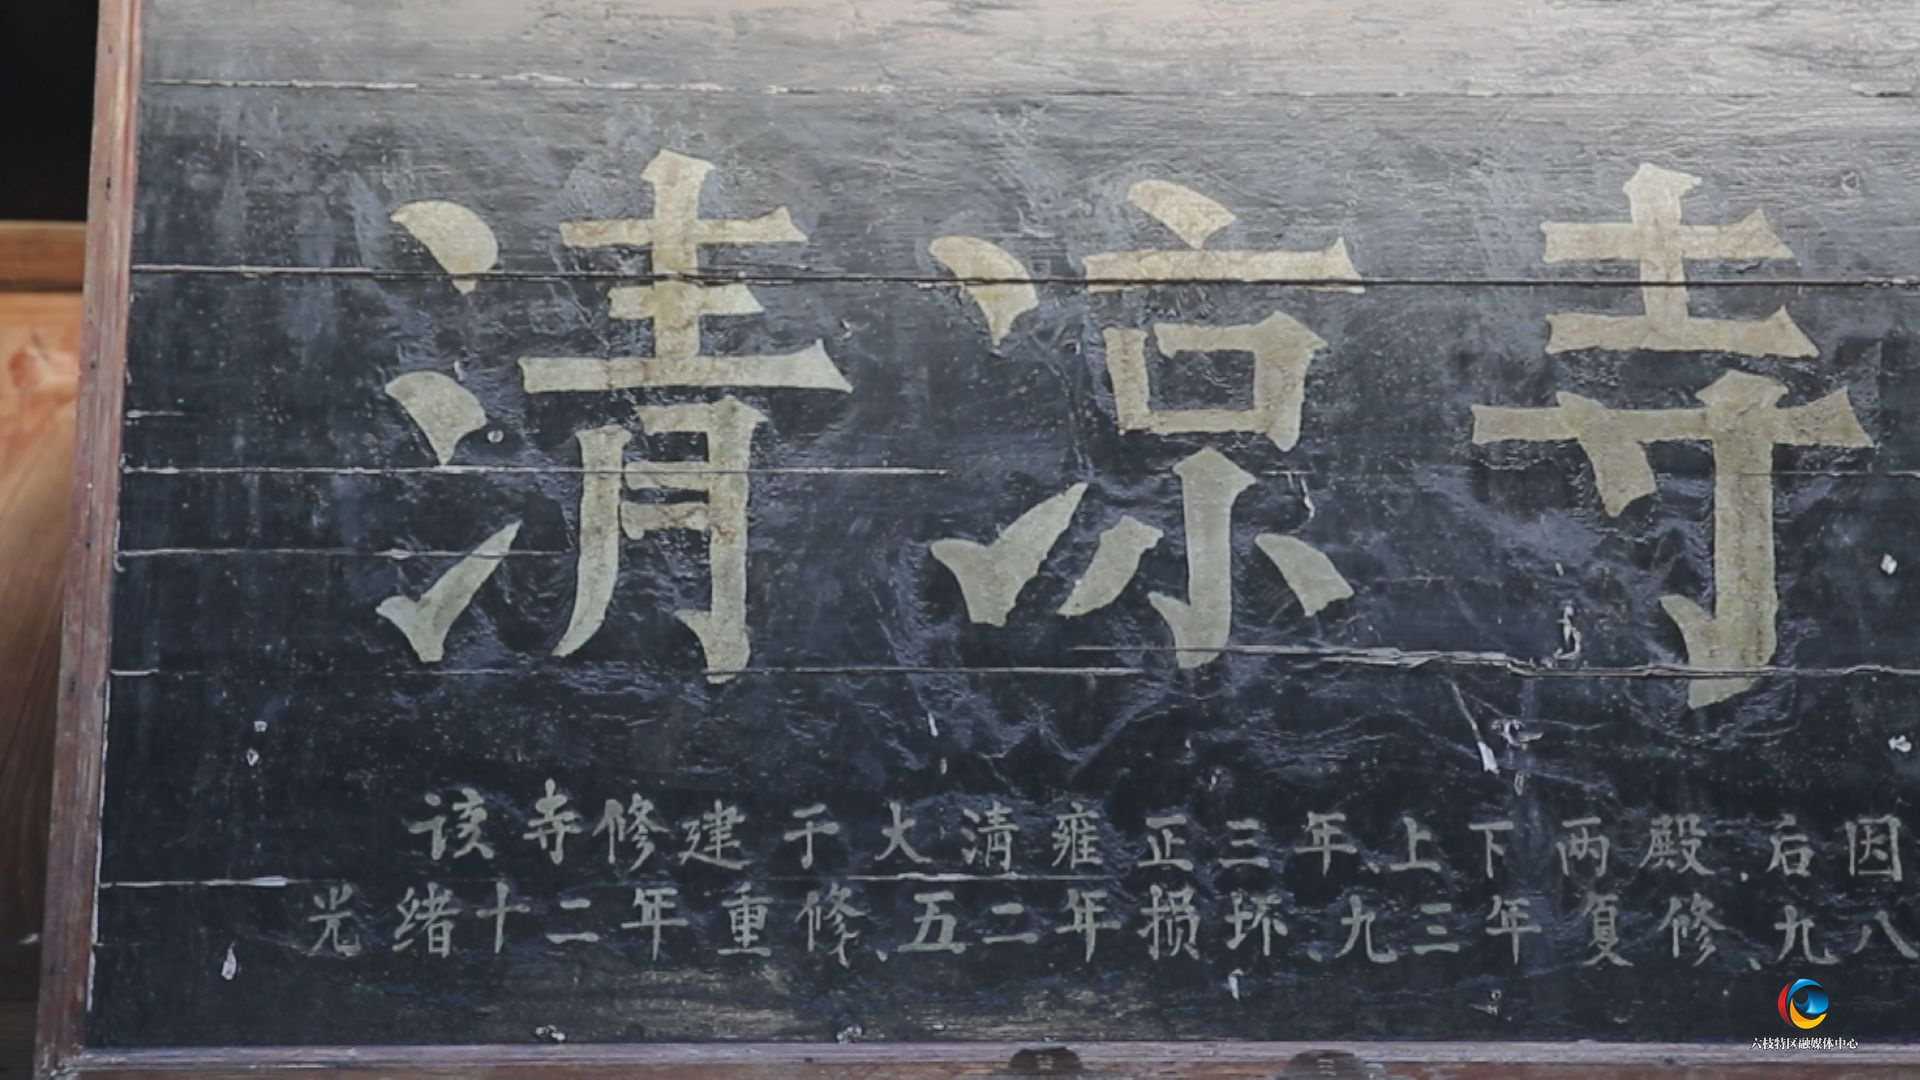 清凉寺
该寺修建于大清雍正三年、上下两殿、后因
光绪十二年重修、五二年损坏、九三年复修、九八
六枝特区融媒体中心